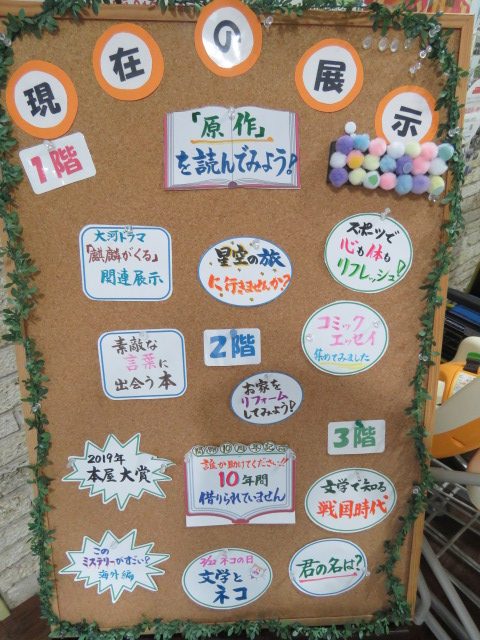 現在の展示
1階
「原作」
を読んでみよう!
大河ドラマ
「麒麟がくる」
関連展示
星空の旅
に行きませんか?
スポーツで
心も体も
リフレッシュ!
素敵な
言葉に
出会う本
2階
コミック
エッセイ
集めてみました
お家を
リフォーム
してみよう!
3階
2019年
本屋大賞
誰か助けてください!!
10年間
借りられていません
文学で知る
戦国時代
この
ミステリーがすごい?
海外編
2/22 ネコの日
文学と
ネコ
君の名は?